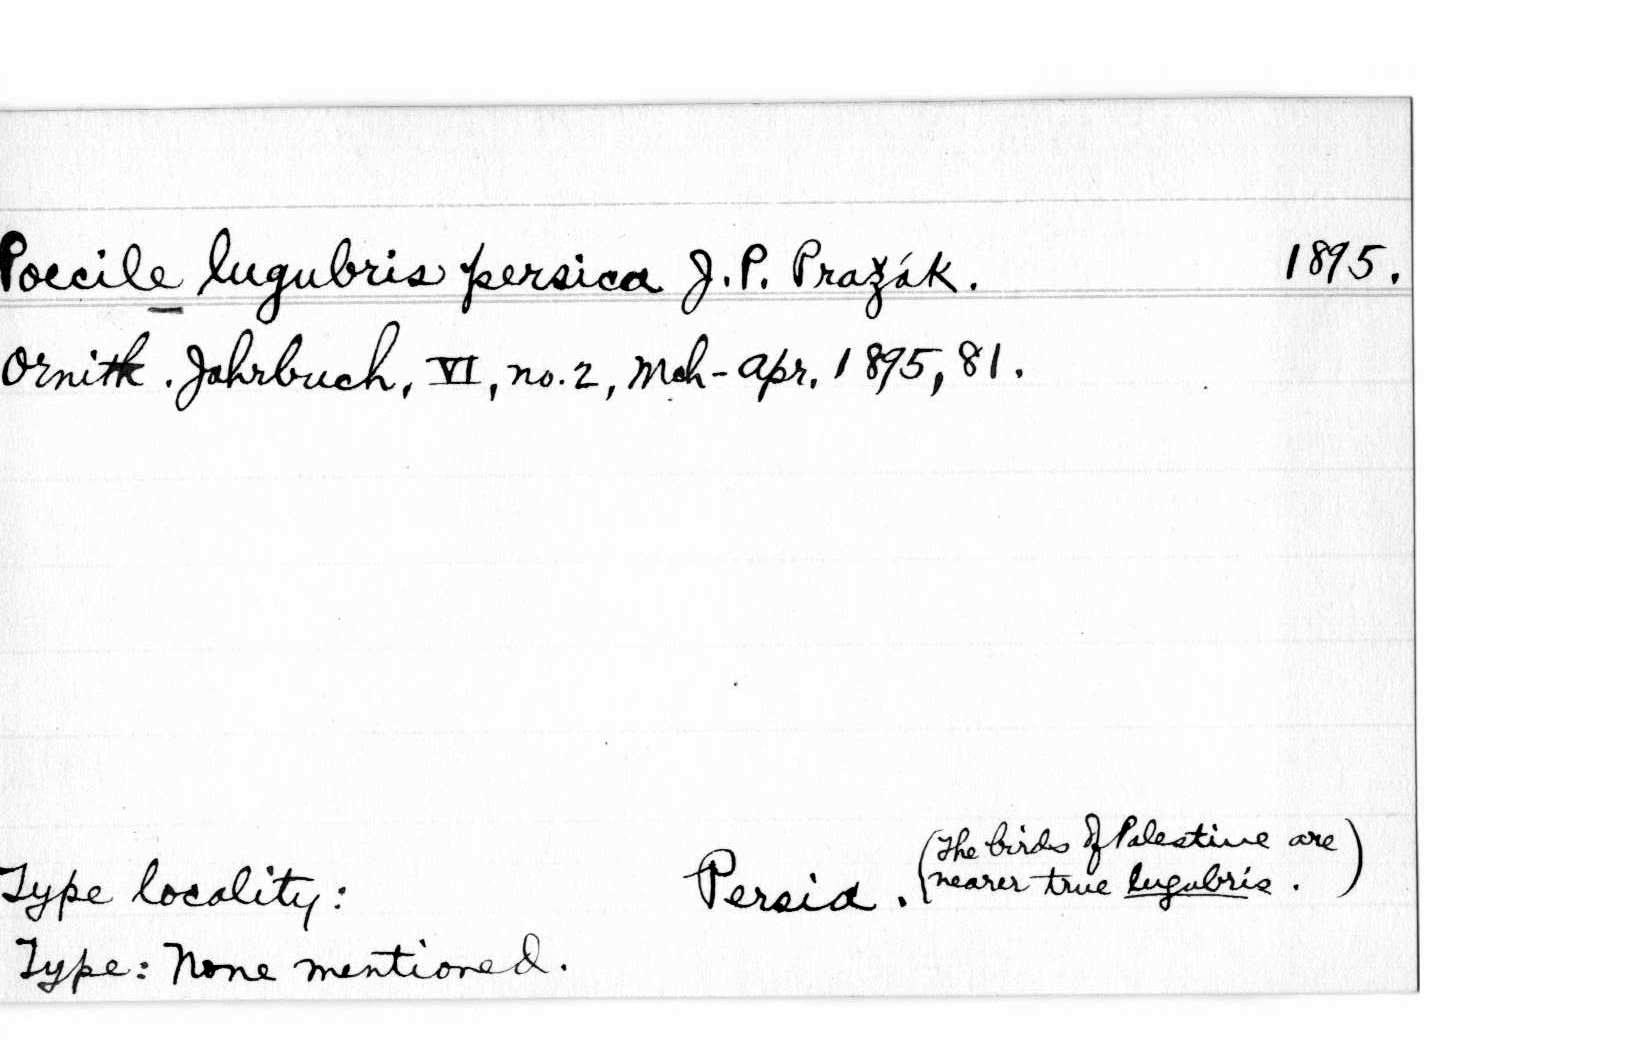 Poecile lugubris persica J. P. Pražák. 1895.
Ornith. Jahrbuch, VI, no. 2, Mch-Apr. 1895, 81.
Type locality: Persia. (The birds of Palestine are
nearer true lugubris.)
Type: None mentioned.